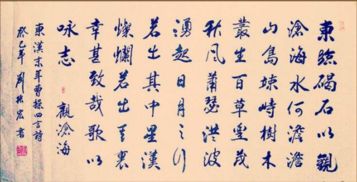 東臨碣石以觀
滄海水何澹澹
山島竦峙樹木
叢生百草豊茂
秋風蕭瑟洪波
湧起日月之行
若出其中星漢
燦爛若出其裏
幸甚致哉歌以
咏志 觀滄海
東漢末年曹操四言詩
癸巳年 劉 書